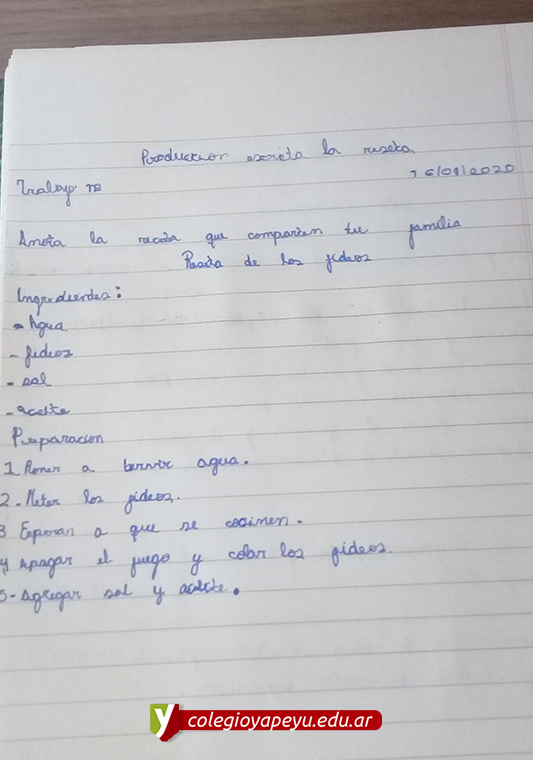 Produccion escrita la reseta
Trabajo n2
16/09/2020
Anota la receta que comparten tu familia
Reseta de los fideos
Ingredientes:
- Agua
- fideos
- sal
- aceite
Preparacion
1 Poner a hervir agua.
2. Meter los fideos.
3 Esperar a que se cocinen.
4 Apagar el fuego y colar los fideos.
5- Agregar sal y aceite.
colegioyapeyu.edu.ar